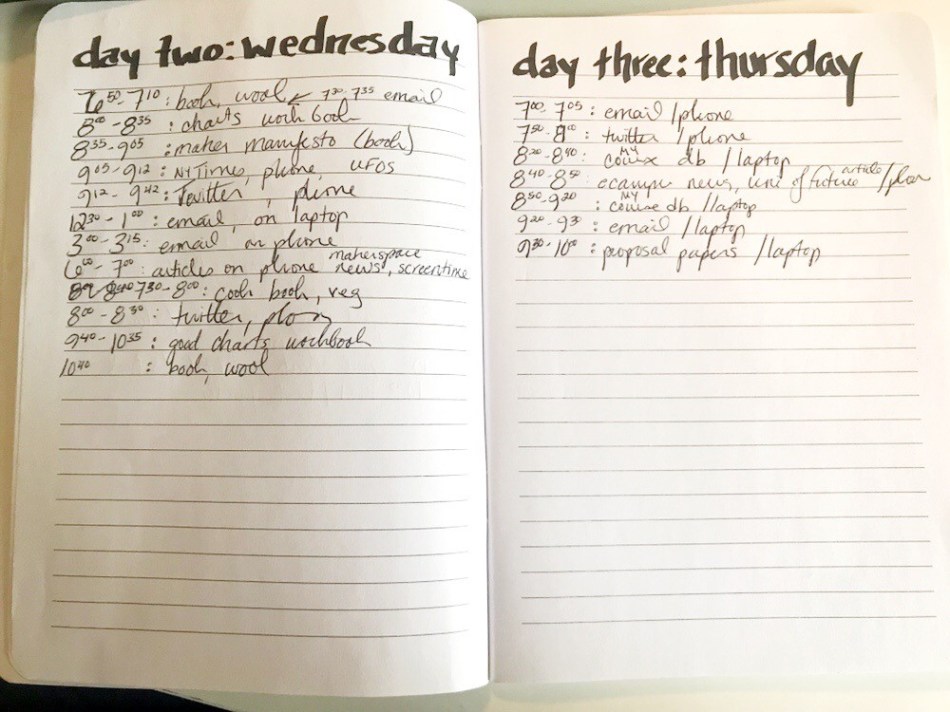 day two: wednesday
6:50-7:10: book, wool ← 7:30-7:35 email
8:00-8:35: charts work book
8:35-9:05: maker manifesto (book)
9:05-9:12: NYTimes, phone, UFOs
9:12-9:42: Twitter, phone
12:30-1:00: email, on laptop
3:00-3:15: email on phone
6:00-7:00: articles on phone makerspace news, screentime
7:30-8:00: cook book, veg
8:00-8:30: twitter, phone
9:40-10:35: good charts workbook
10:40: book, wool
day three: thursday
7:00-7:05: email/phone
7:50-8:00: twitter/phone
8:20-8:40: MY course db/laptop
8:40-8:50: ecampus news, univ of future article/phone
8:50-9:20: MY course db/laptop
9:20-9:30: email/laptop
9:30-10:00: proposal papers/laptop